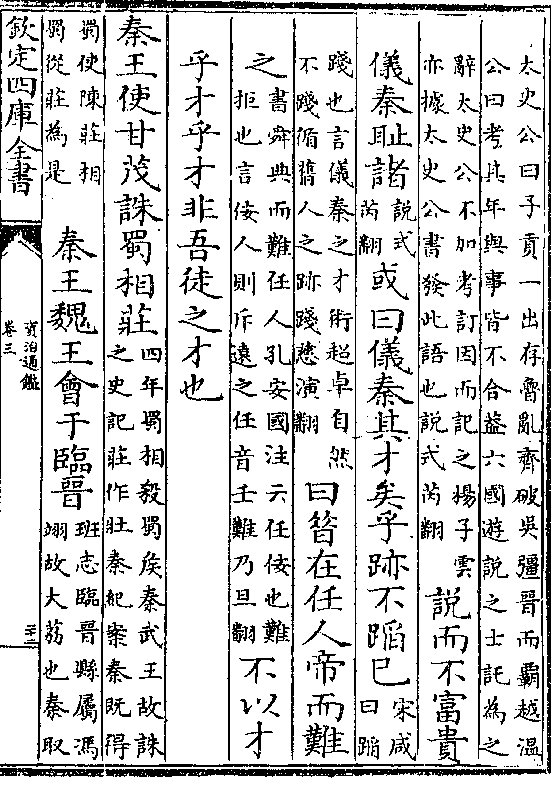 太史公曰子貢一出存魯亂齊破吳彊晉而霸越溫
公曰考其年與事皆不合蓋六國遊說之士託為之
辭太史公不加考訂因而記之楊子雲
亦據太史公書發此語也説式芮翻
說而不富貴
儀秦恥諸
說式
芮翻
或曰儀秦其才矣乎跡不蹈已
宋咸
曰蹈
踐也言儀秦之才術超卓自然
不踐循舊人之跡踐慈演翻
曰昔在任人帝而難
之
書舜典而難任人孔安國注云任佞也難
拒也言佞人則斥遠之任音壬難乃旦翻
不以才
乎才乎才非吾徒之才也
秦王使甘茂誅蜀相莊
四年蜀相殺蜀侯秦武王故誅
之史記莊作壯秦紀案秦既得
蜀使陳莊相
蜀從莊為是
秦王魏王會于臨晉
班志臨晉縣屬馮
翊故大荔也秦取
欽定四庫全書
資治通鑑
卷三